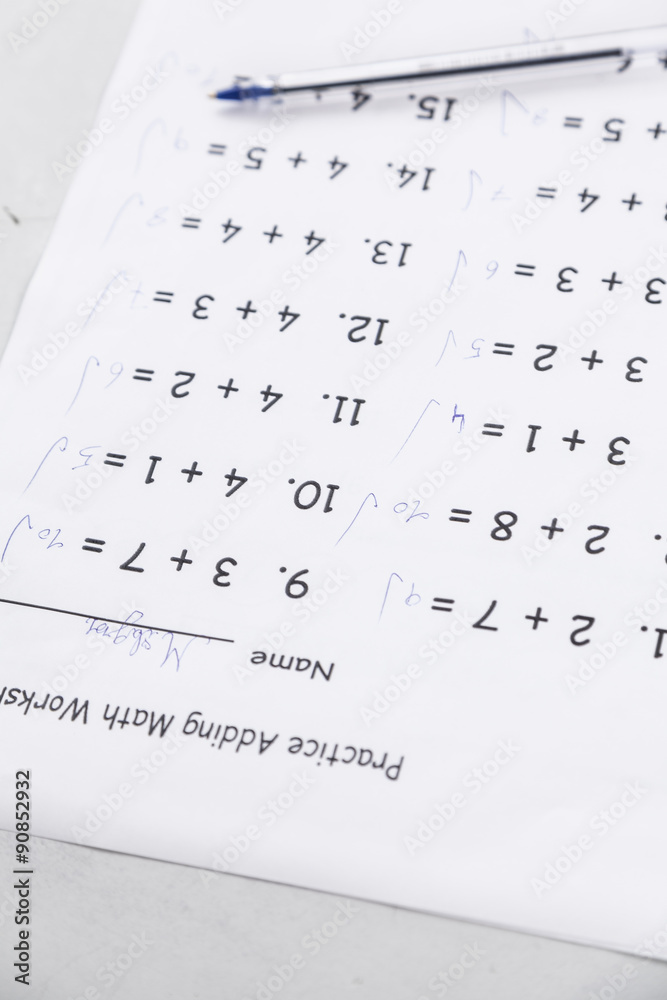 Practice Adding Math Worksh
Name
1. 2 + 7 = 9 ✓ 9. 3 + 7 = 10 ✓
. 2 + 8 = 10 ✓ 10. 4 + 1 = 5 ✓
3 + 1 = 4 ✓ 11. 4 + 2 = 6 ✓
3 + 2 = 5 ✓ 12. 4 + 3 = 7 ✓
3 + 3 = 6 ✓ 13. 4 + 4 = 8 ✓
3 + 4 = 7 ✓ 14. 4 + 5 = 9 ✓
+ 5 = 8 ✓ 15. 4
Adobe Stock | #90852932